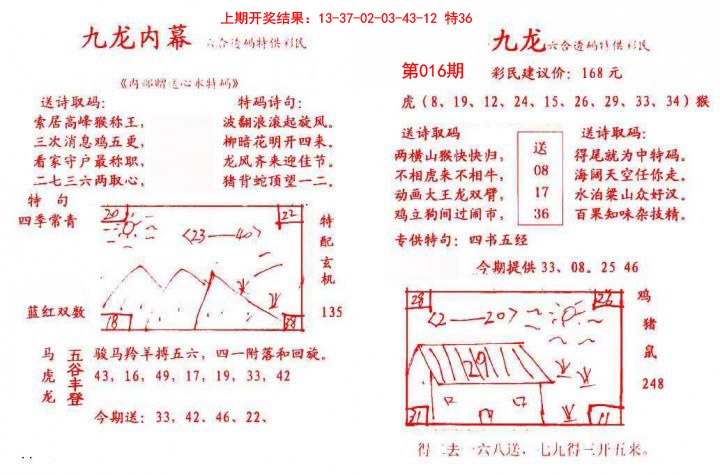 上期开奖结果：13-37-02-03-43-12 特36
九龙内幕 六合透码特供彩民
《内部赠送心水特码》
送诗取码：
索居高峰猴称王，
三次消息鸡五更，
看家守户最称职，
二七三六两取心，
特码诗句：
波翻浪滚起旋风。
柳暗花明开四来。
龙风齐来迎佳节。
猪背蛇顶望一二。
特 句
四季常青
蓝红双数
20
22
<23—40>
18
38
特配玄机
135
马虎龙
五谷丰登
骏马羚羊搏五六，四一附落和回旋。
43，16，49，17，19，33，42
今期送：33，42，46，22、
九龙 六合透码特供彩民
第016期
彩民建议价：168 元
虎（8、19、12、24、15、26、29、33、34）猴
送诗取码
两横山猴快快归，
不相虎来不相牛，
动画大王龙双臂，
鸡立狗间过闹市，
送
08
17
36
送诗取码：
得尾就为中特码。
海阔天空任你走。
水泊梁山众好汉。
百果知味杂技精。
专供特句：四书五经
今期提供 33、08。25 46
28
26
<2—20>
29
21
11
鸡猪鼠
248
得二去一六八送，七九得三开五来。